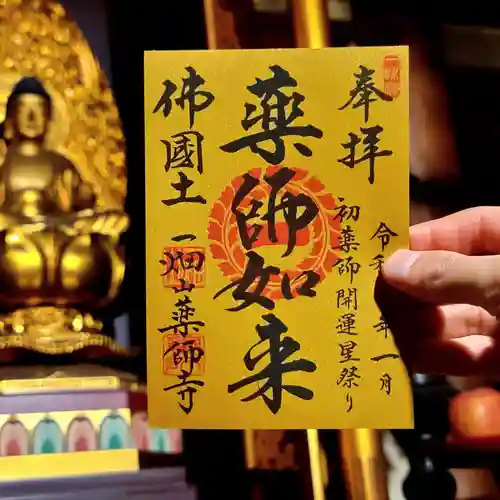 奉拝
初薬師開運星祭り
令和
年一月
薬師如来
佛國土
一畑山薬師寺